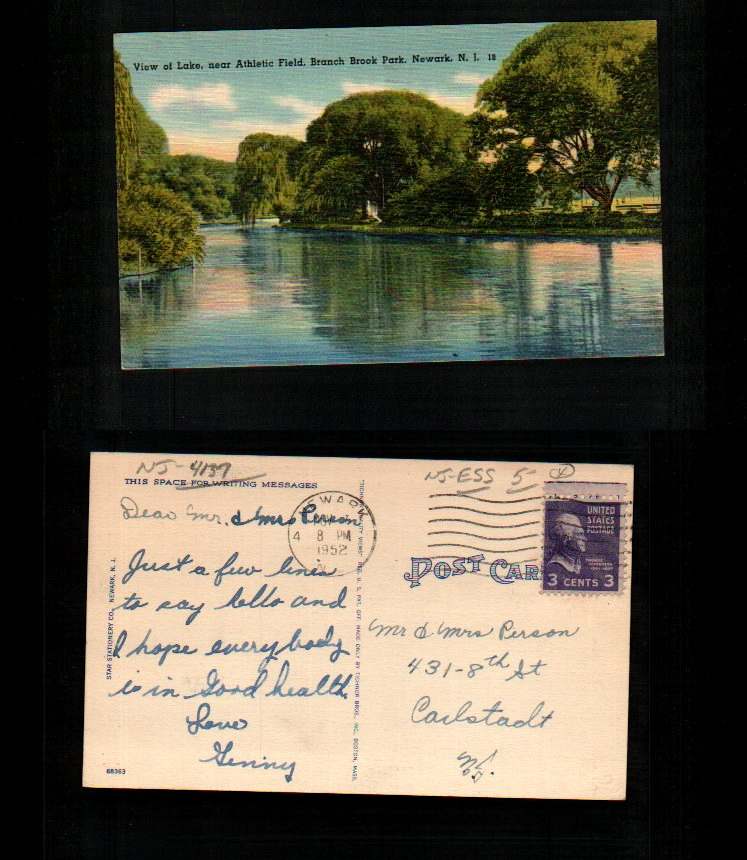 View of Lake, near Athletic Field, Branch Brook Park, Newark, N. J. 18
NJ-4137
THIS SPACE FOR WRITING MESSAGES
Dear Mr. & Mrs Person
Just a few lines
to say hello and
I hope everybody
is in Good health.
Love
Genny
STAR STATIONERY CO., NEWARK, N. J.
68363
"TICHNOR QUALITY VIEWS" REG. U. S. PAT. OFF. MADE ONLY BY TICHNOR BROS., INC., BOSTON, MASS.
NEWARK
4 8 PM
1952
N.J.
NJ-ESS 5-
POST CARD
UNITED
STATES
POSTAGE
3 CENTS 3
Mr & Mrs Person
431-8th St
Carlstadt
N.J.